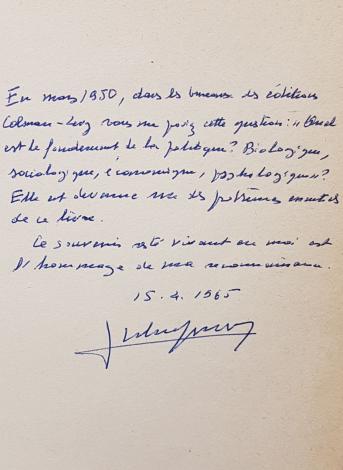 En mars 1950, dans les bureaux des éditions
Calmann-Levy vous me posiez cette question : "Quel
est le fondement de la politique ? Biologique,
sociologique, économique, psychologique" ?
Elle est devenue un des problèmes essentiels
de ce livre.
Ce souvenir resté vivant en moi est
l'hommage de ma reconnaissance.
15. 4. 1965